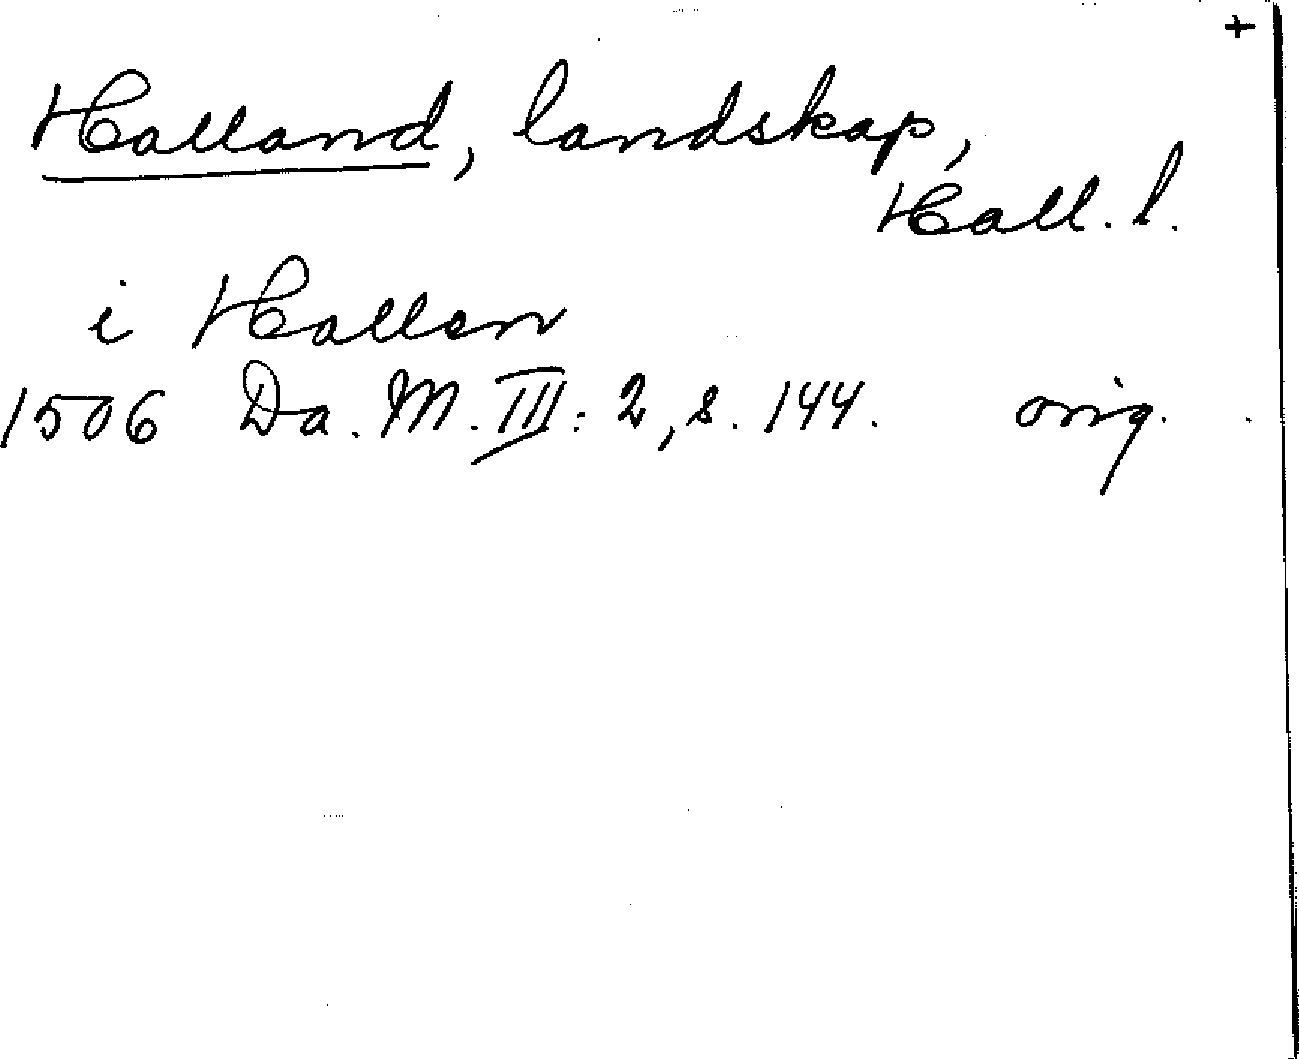 +
Halland, landskap,
Hall. l.
i Hallen
1506 Da. M. III: 2, s. 144. orig.